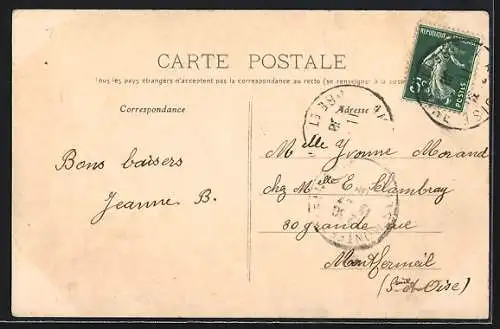 CARTE POSTALE
Tous les pays étrangers n'acceptent pas la correspondance au recto (se renseigner à la
Correspondance
Adresse
RÉPUBLIQUE
5c
POSTES
Bons baisers
Jeanne B.
Melle Yvonne Morand
chez Melle E. Clambray
80 grande rue
Montfermeil
(S. et Oise)